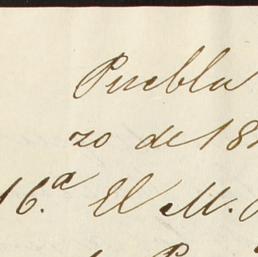 Puebla
zo de 18
16.ª El M.